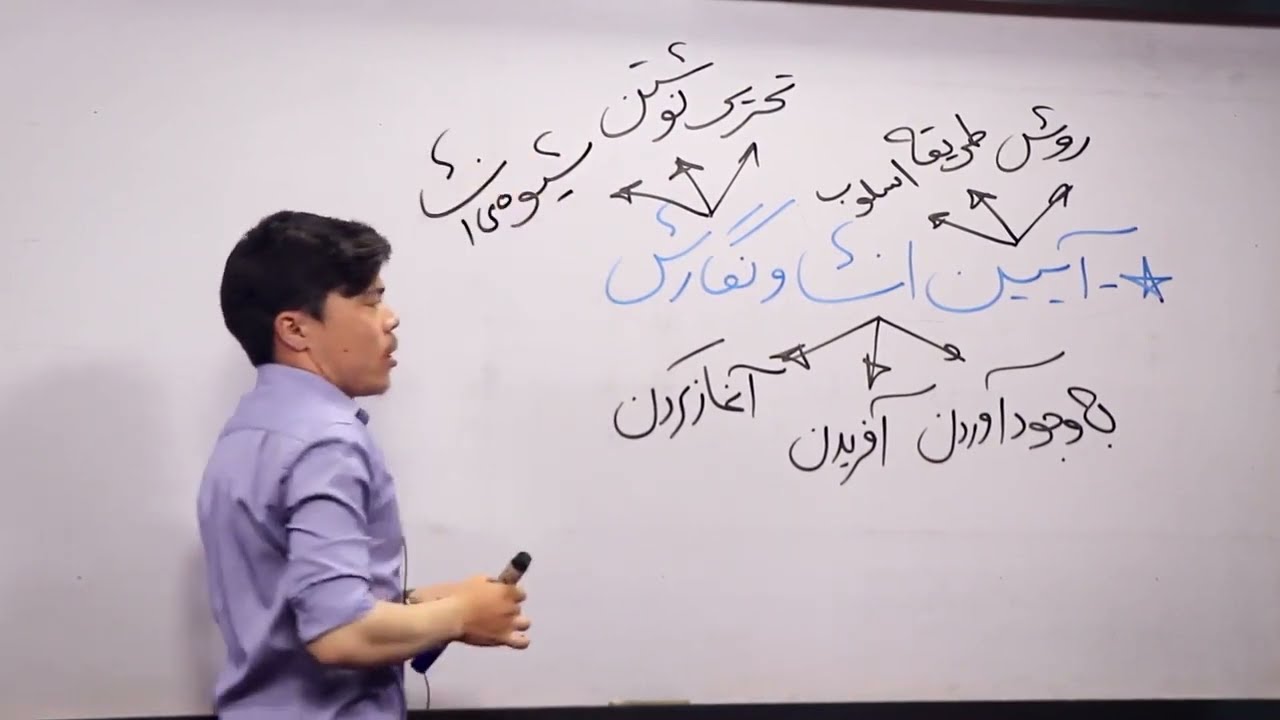 روش طریقه اسلوب
تحریر نوشتن شیوه‌ی انشا
★- آیین انشا و نگارش
به وجود آوردن آفریدن آغاز کردن